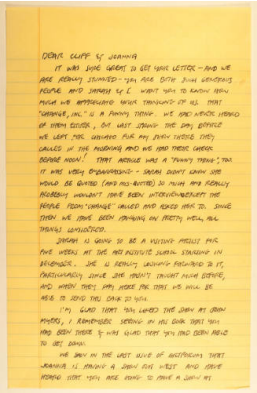 DEAR CLIFF & JOANNA
IT WAS SURE GREAT TO GET YOUR LETTER - AND WE
ARE REALLY STUNNED - YOU ARE BOTH SUCH GENEROUS
PEOPLE AND SARAH & I WANT YOU TO KNOW HOW
MUCH WE APPRECIATE YOUR THINKING OF US. THAT
"CHANGE, INC." IS A FUNNY THING. WE HAD NEVER HEARD
OF THEM EITHER, BUT LAST SPRING THE DAY BEFORE
WE LEFT FOR CHICAGO FOR MY SHOW THERE THEY
CALLED IN THE MORNING AND WE HAD THERE CHECK
BEFORE NOON! THAT ARTICLE WAS A "FUNNY THING", TOO
IT WAS VERY EMBARRASSING - SARAH DIDN'T KNOW SHE
WOULD BE QUOTED (AND MIS-QUOTED) SO MUCH AND REALLY
PROBABLY WOULDN'T HAVE BEEN INTERVIEWED EXCEPT THE
PEOPLE FROM "CHANGE" CALLED AND ASKED HER TO. SINCE
THEN WE HAVE BEEN HANGING ON PRETTY WELL, ALL
THINGS CONSIDERED.
SARAH IS GOING TO BE A VISITING ARTIST FOR
FIVE WEEKS AT THE ART INSTITUTE SCHOOL STARTING IN
DECEMBER. SHE IS REALLY LOOKING FORWARD TO IT,
PARTICULARLY SINCE SHE HASN'T TAUGHT MUCH BEFORE,
AND WHEN THEY PAY HERE FOR THAT WE WILL BE
ABLE TO SEND THIS BACK TO YOU.
I'M GLAD THAT YOU LIKED THE SHOW AT
MYERS, I REMEMBER SEEING IN HIS BOOK THAT YOU
HAD BEEN THERE & WAS GLAD THAT YOU HAD BEEN ABLE
TO GET DOWN.
WE SAW IN THE LAST ISSUE OF ARTFORUM THAT
JOANNA IS HAVING A SHOW OUT WEST AND HAVE
HEARD THAT YOU ARE GOING TO HAVE A SHOW AT